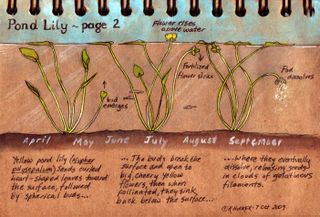 Pond Lily ~ page 2
Flower rises
above water
Fertilized
flower sinks
Pod
dissolves
bud
emerges
April May June July August September
Yellow pond lily (Nuphar
polysepalum) sends curled
heart-shaped leaves toward
the surface, followed
by spherical buds...
... The buds break the
surface and open to
big, cheery yellow
flowers, then when
pollinated, they sink
back below the surface...
...where they eventually
dissolve, releasing seeds
in clouds of gelatinous
filaments.
7 Oct 2009